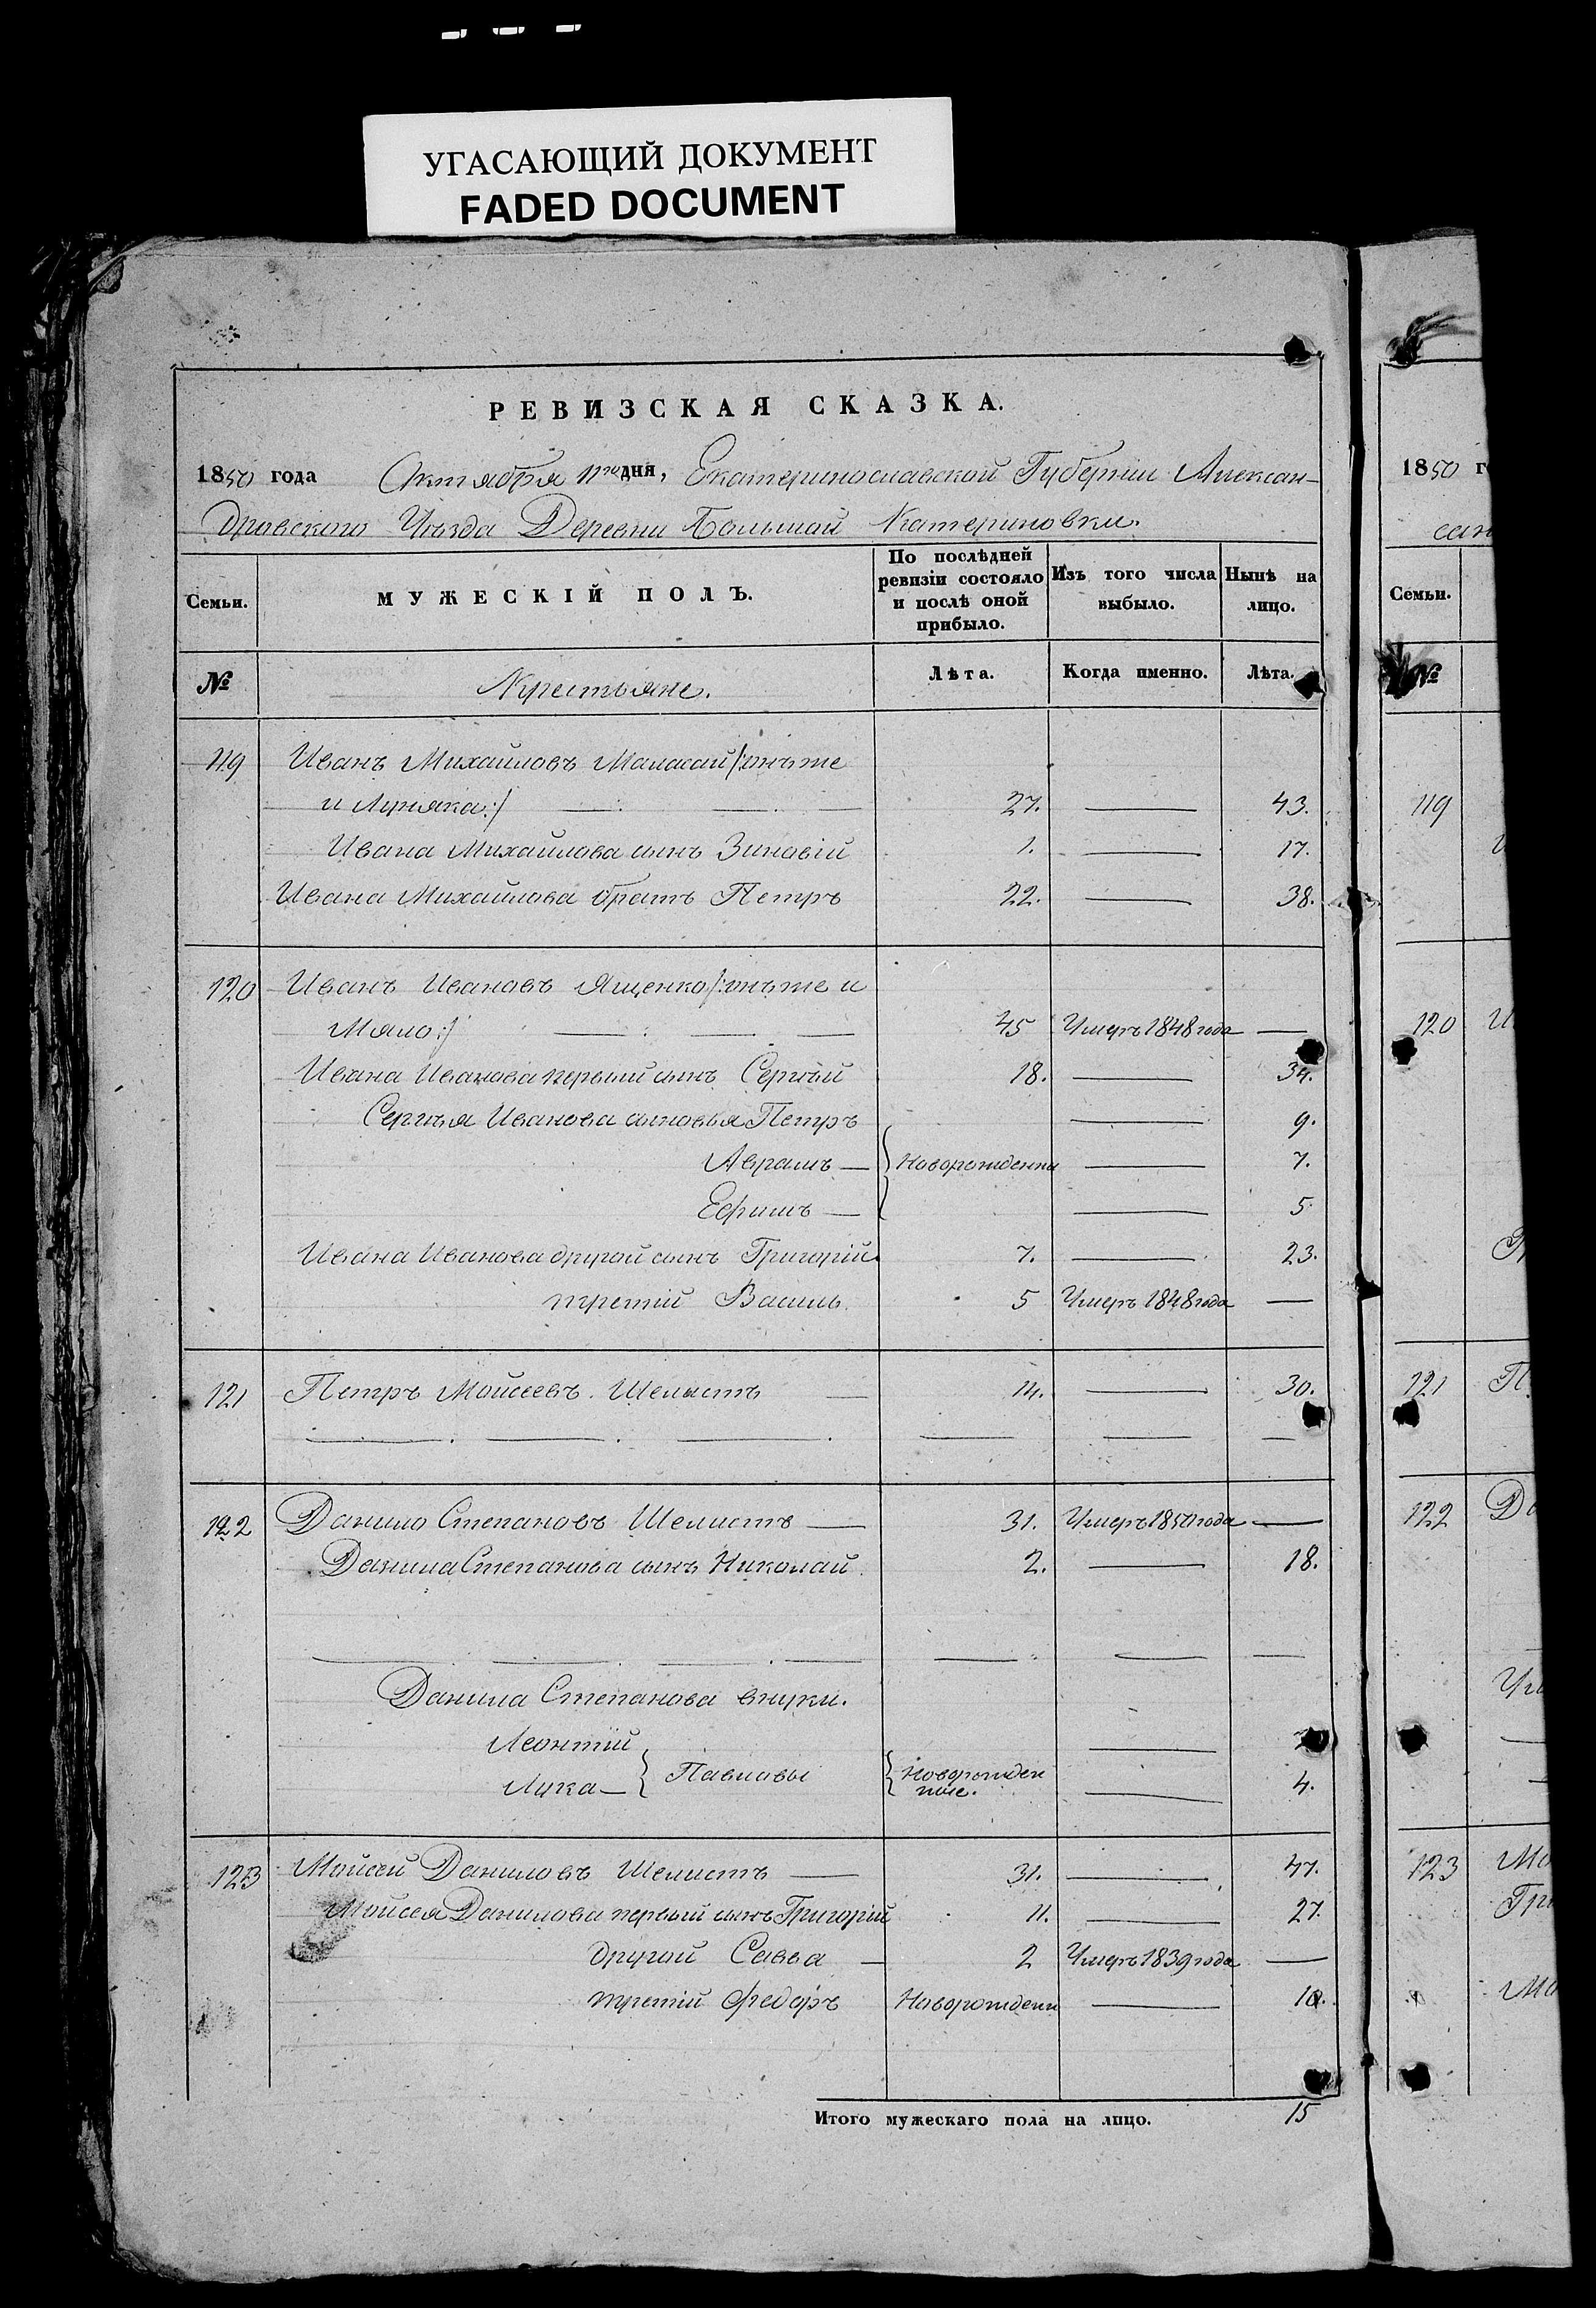 УГАСАЮЩИЙ ДОКУМЕНТ
FADED DOCUMENT
РЕВИЗСКАЯ СКАЗКА.
1850 года Октября 11го дня, Екатеринославской Губернии Алексан-
дровского Уѣзда Деревни Большой Катериновки.
Семьи.
МУЖЕСКІЙ ПОЛЪ.
По послѣдней ревизіи состояло и послѣ оной прибыло.
Изъ того числа выбыло.
Нынѣ на лицо.
№ Крестьяне. Лѣта. Когда именно. Лѣта.
119 Иванъ Михайловъ Малахай /:онъ же
и Луняка:/ 27. 43.
Ивана Михайлова сынъ Зиновій 1. 17.
Ивана Михайлова братъ Петръ 22. 38.
120 Иванъ Ивановъ Ященко /:онъ же и
Мяло:/ 45 Умеръ 1848 года
Ивана Иванова первый сынъ Сергѣй 18. 34.
Сергѣя Иванова сыновья Петръ 9.
Аврамъ Новорожденны 7.
Ефимъ 5.
Ивана Иванова другой сынъ Григорій 7. 23.
третій Василь. 5 Умеръ 1848 года
121 Петръ Мойсеевъ Шелистъ 14. 30.
122 Данило Степановъ Шелистъ 31. Умеръ 1850 года
Данила Степанова сынъ Николай 2. 18.
Данила Степанова внуки.
Леонтій
Лука Павловы Новорожден
ные. 4.
123 Мойсей Даниловъ Шелистъ 31. 47.
Мойсея Данилова первый сынъ Григорій 11. 27.
другой Савва 2 Умеръ 1839 года
третій Федоръ Новорожденн 10.
Итого мужескаго пола на лицо. 15
1850 г
сан
Семьи.
№
119
120 И
121 П
122 Да
Ум
123 Мо
Гри
Мо